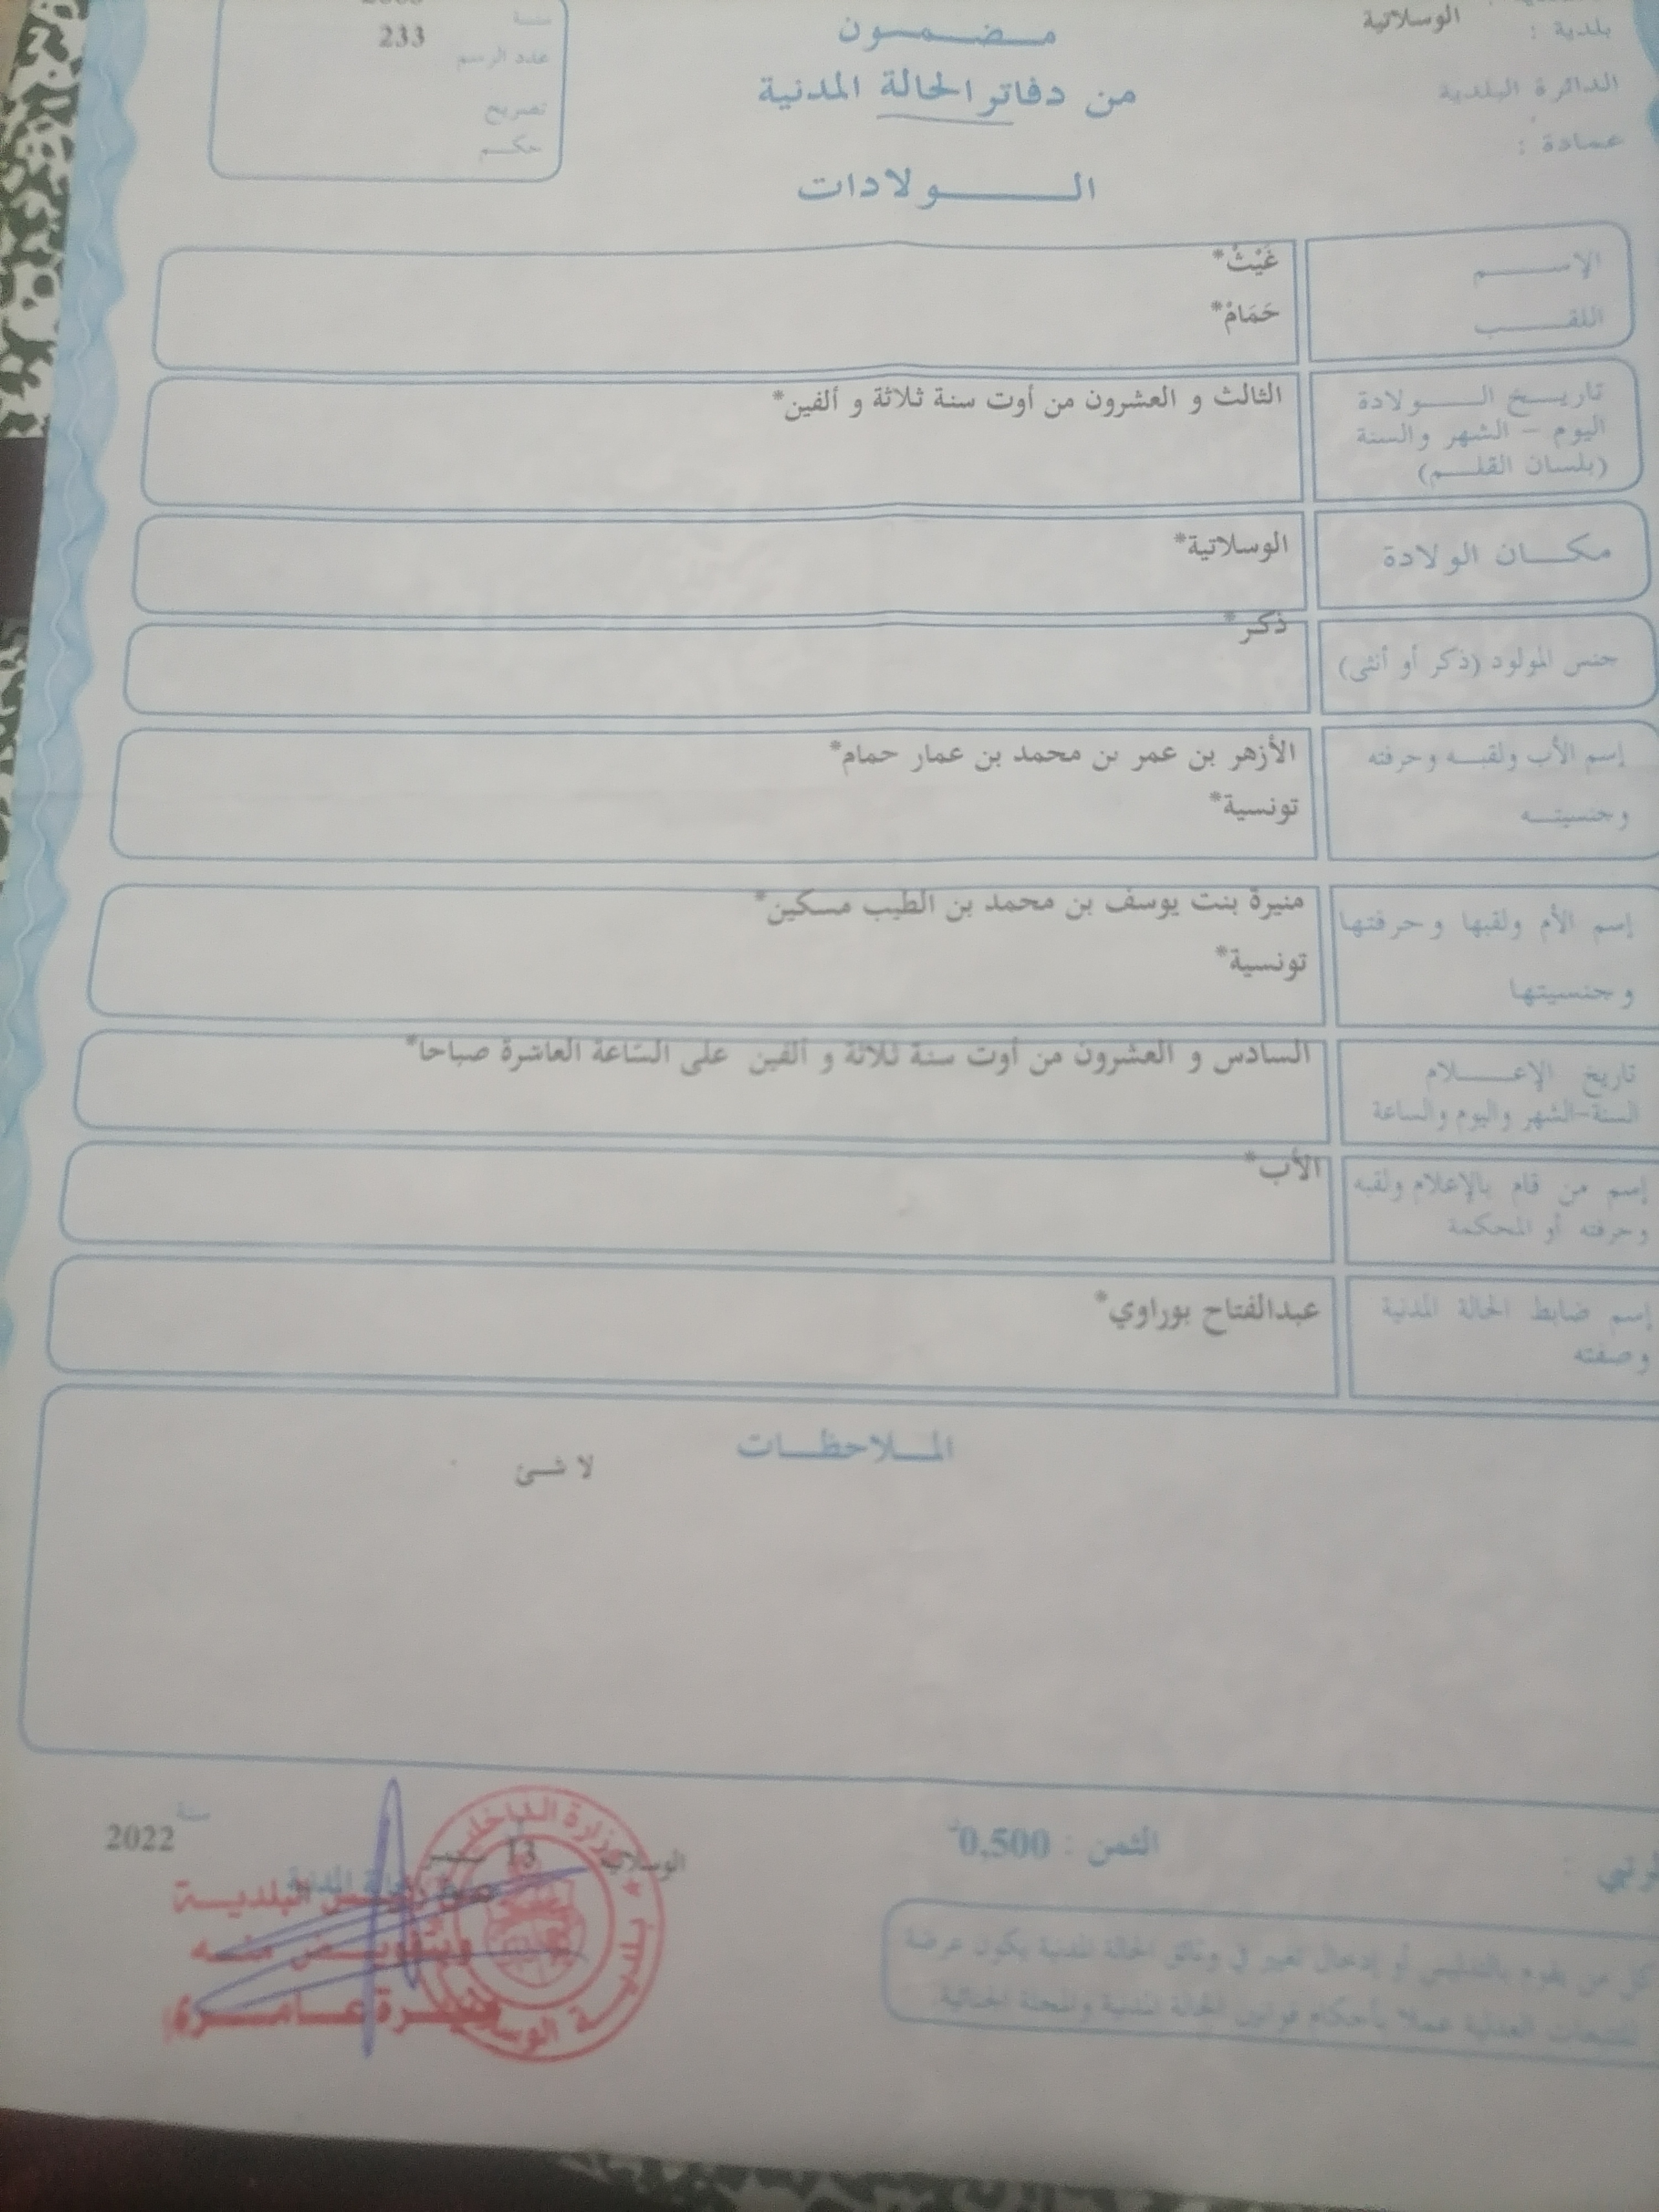 بلدية : الوسلاتية
الدائرة البلدية
عمادة :
مضمون
من دفاتر الحالة المدنية
الولادات
سنة
عدد الرسم 233
تصريح
حكم
الإسم غَيْثْ*
اللقب حَمَامْ*
تاريخ الولادة
اليوم - الشهر والسنة
(بلسان القلم)
الثالث و العشرون من أوت سنة ثلاثة و ألفين*
مكان الولادة الوسلاتية*
جنس المولود (ذكر أو أنثى) ذكر*
إسم الأب ولقبه وحرفته
وجنسيته
الأزهر بن عمر بن محمد بن عمار حمام*
تونسية*
إسم الأم ولقبها وحرفتها
وجنسيتها
منيرة بنت يوسف بن محمد بن الطيب مسكين*
تونسية*
تاريخ الإعلام
السنة-الشهر واليوم والساعة
السادس و العشرون من أوت سنة ثلاثة و ألفين على الساعة العاشرة صباحا*
إسم من قام بالإعلام ولقبه
وحرفته أو المحكمة
الأب*
إسم ضابط الحالة المدنية
وصفته
عبدالفتاح بوراوي*
الملاحظات
لا شئ
الثمن : 0,500د
الوسلات 13 سنة 2022
البلدية
وبتفويض منه
عامري
كل من يقوم بالتدليس أو إدخال تغيير في وثائق الحالة المدنية يكون عرضة
للتتبعات العدلية عملا بأحكام قوانين الحالة المدنية والمجلة الجنائية